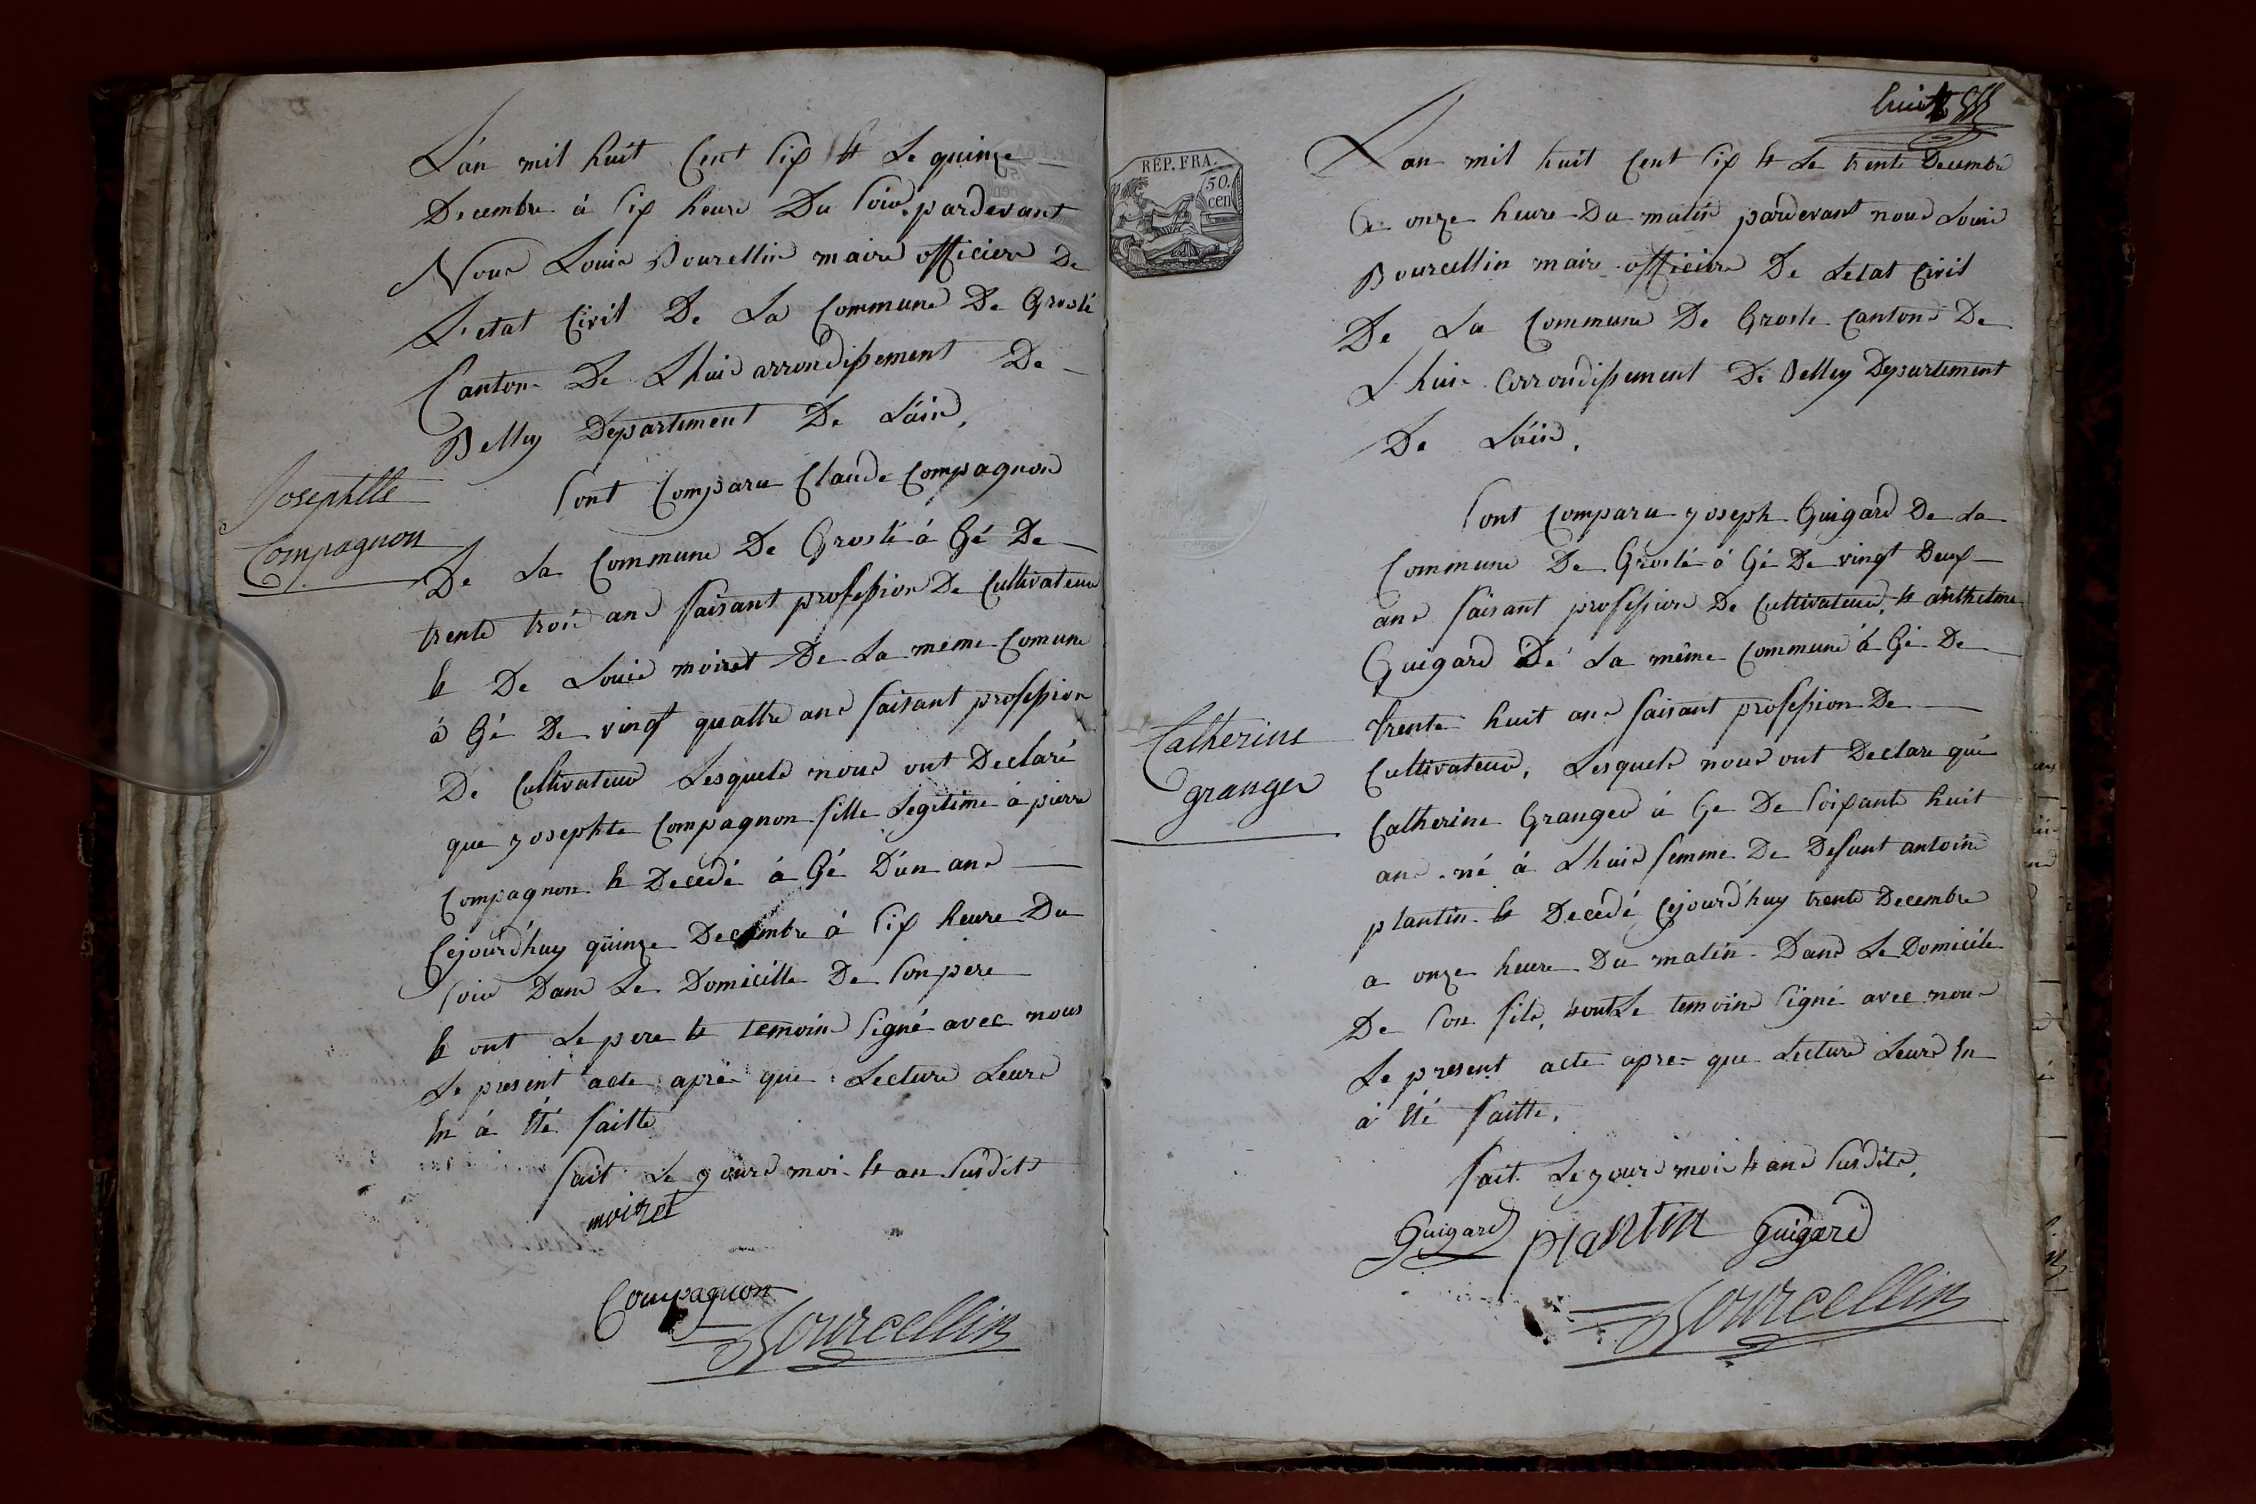 L'an mil huit Cent six & Le quinze
Decembre à six heure Du soir pardevant
Nous Louis Bourcellin maire officiere De
L'etat Civil De La Commune De Groslé
Canton De Lhuis arrondissement De
Belley Departement De L'ain,
Josephtte
Compagnon
Sont Comparu Claude Compagnon
De La Commune De Groslé à Gé De
trente trois ans faisant profession De Cultivateur
& De Louis moiret De La meme Comune
à Gé De vingt quattre ans faisant profession
De Cultivateur Lesquels nous ont Declaré
que Josephte Compagnon fille Legitime à pierre
Compagnon & Decedé à Gé D'un ans
Cejourd'huy quinze Decembre à six heure Du
soir Dans Le Domicille De son pere
& ont Le pere & temoins signé avec nous
Le present acte aprés que Lecture Leurs
En à Eté faitte
fait Le jours mois & an susdits
moiret
Compagnon
Bourcellin
huit
REP. FRA.
50.
cen
Lan mil huit Cent six & Le trente Decembre
à onze heure Du matin pardevant nous Louis
Bourcellin maire officiere De Letat Civil
De La Commune De Grosle Canton De
Lhuis arrondissement De Belley Departement
De L'ain.
Sont Comparu Joseph Guigard De La
Commune De Groslé à Gé De vingt Deux
ans faisant profession De Cultivateur, & anthelme
Guigard De La même Commune à Gé De
trente huit ans faisant profession De
Catherine
granger
Cultivateur, Lesquels nous ont Declare que
Catherine Granger à Ge De soixante huit
ans né à Lhuis femme De Defunt antoine
plantin & Decedé Cejourd'huy trente Decembre
a onze heure Du matin Dans Le Domicile
De son fils, & ont Le temoins signé avec nous
Le present acte apres que Lecture Leurs En
à Eté faitte.
fait Le jours mois & ans susdits,
Guigard plantin Guigard
Bourcellin